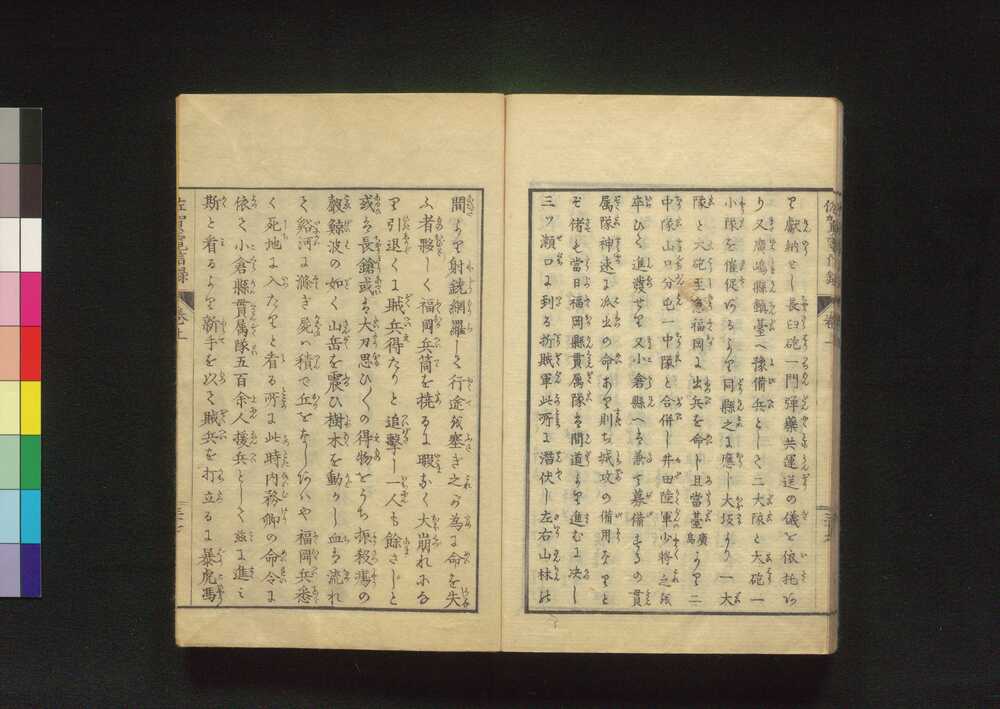 を献納をし長臼砲一門弾薬共運送の儀を依托あ
り又廣嶋縣鎮臺へ豫備兵として二大隊と大砲一
小隊を催促あるよって同縣之に應し大坂より一大
隊と大砲至急福岡に出兵を命し且當臺廣島より二
中隊山口分屯一中隊と合併し井田陸軍少将之を
卒ひて進發せり又小倉縣へも兼て募備する の貫
属隊神速に派出の命あり則ち城攻の備用なりと
ぞ偖も當日福岡縣貫属隊は間道より進むに决し
三ツ瀬口に到る折賊軍此所に潜伏し左右山林の
間より射銃網羅して行途を塞ぎ之が為に命を失
ふ者夥しく福岡兵筒を撓るに暇なく大崩れにな
り引退くに賊兵得たりと追擊し一人も餘さじと
或は長鎗或は大刀思ひ〱の得物をうち振殺傷の
聲鯨波の如く山岳を震ひ樹木を動かし血は流れ
て谿河に滌ぎ屍は積で丘をなしあはや福岡兵悉
く死地に入たりと看る所に此時内務卿の命令に
依て小倉縣貫属隊五百余人援兵として茲に進み
斯と看るより新手を以て賊兵を打立るに暴虎馮
佐賀電信録
巻之上